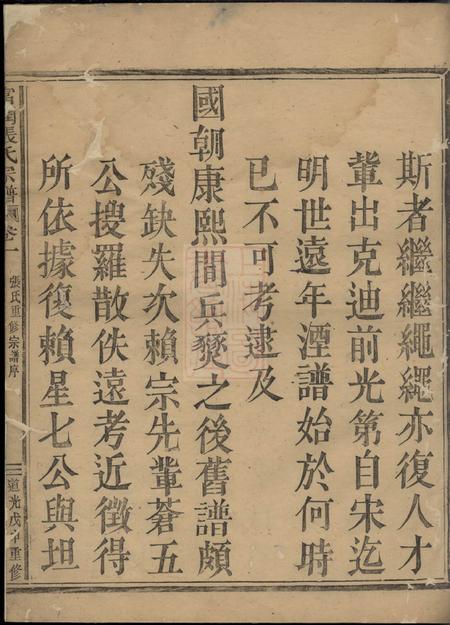 斯者繼繼繩繩亦復人才
輩出克迪前光第自宋迄
明世遠年湮譜始於何時
已不可考逮及
國朝康熙間兵燹之後舊譜頗
殘缺失次賴宗先輩蒼五
公搜羅散佚遠考近徵得
所依據復賴星七公與坦
張氏宗譜 卷一
張氏重修宗譜序
三 道光戊申重修